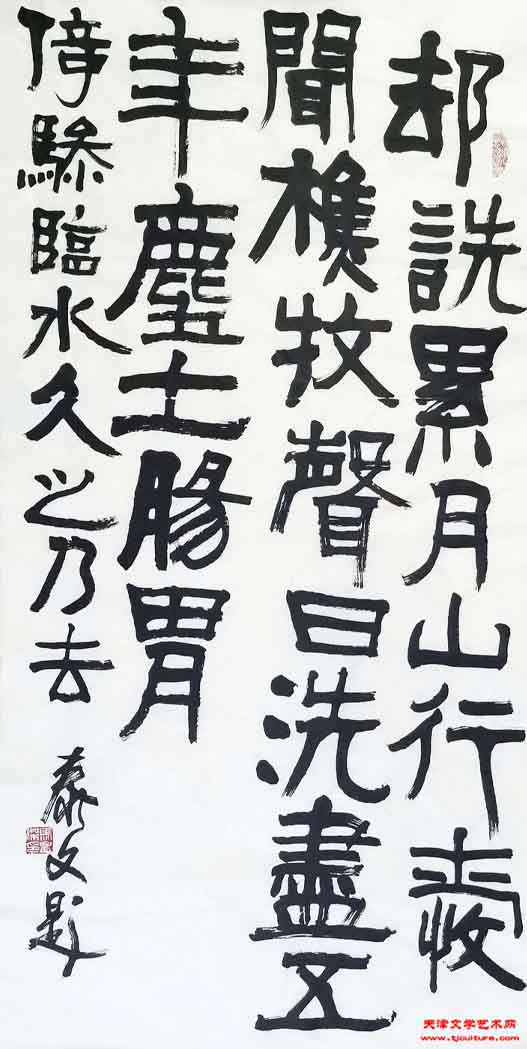 却詵累月山行
聞樵牧聲曰洗盡五
年塵土腸胃
倚驂臨水久之乃去
泰文題
天津文学艺术网
www.tjculture.com